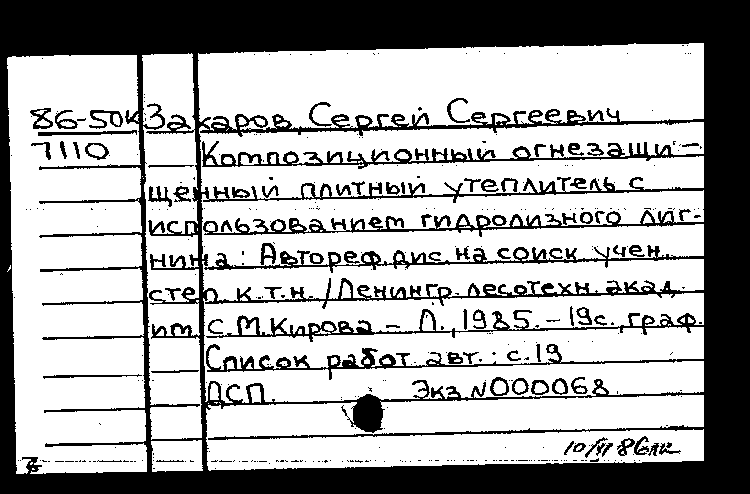 86-50к Захаров, Сергей Сергеевич
7110 Композиционный огнезащи-
щенный плитный утеплитель с
использованием гидролизного лиг-
нина: Автореф. дис. на соиск. учен.
степ. к.т.н. /Ленингр. лесотехн. акад.
им. С.М.Кирова - Л., 1985. - 19с., граф.
Список работ авт.: с.19
ДСП. Экз. N000068